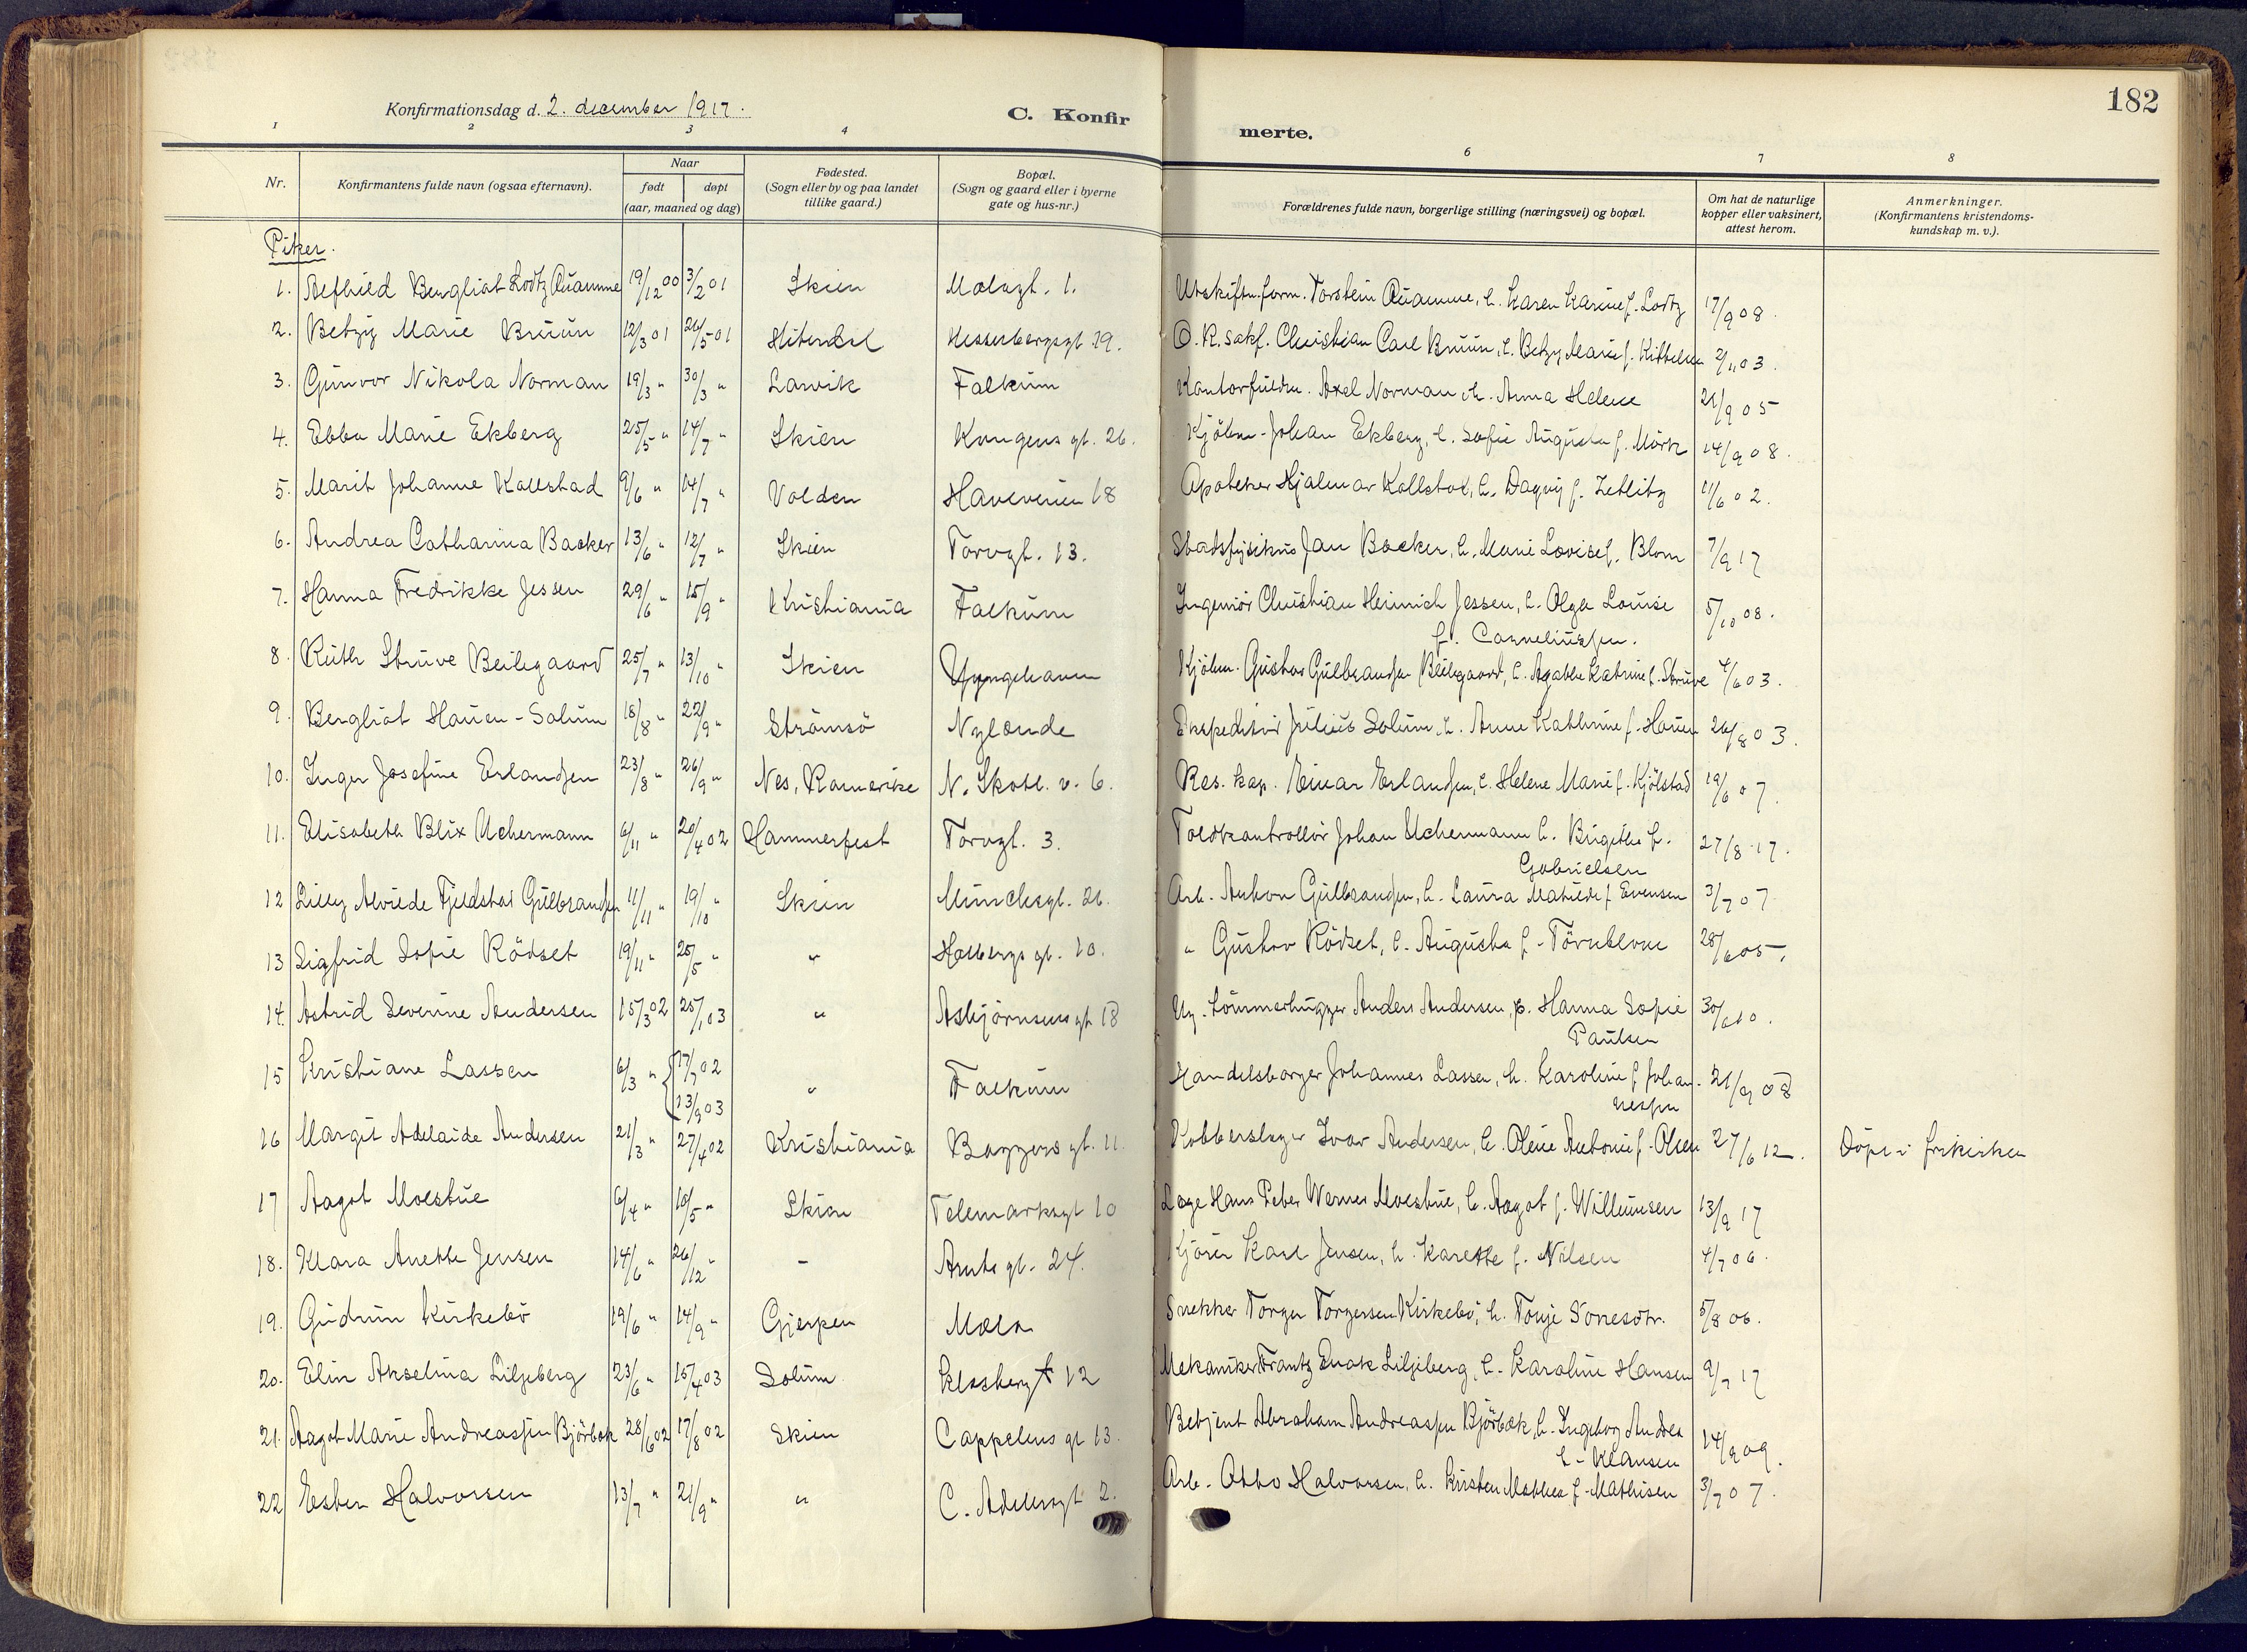 182
Konfirmationsdag d. 2. december 1917.
C. Konfir merte.
1 2 3 4 6 7 8
Nr.
Konfirmantens fulde navn (ogsaa efternavn).
Naar
født døpt
(aar, maaned og dag)
Fødested.
(Sogn eller by og paa landet
tillike gaard.)
Bopæl.
(Sogn og gaard eller i byerne
gate og hus-nr.)
Forældrenes fulde navn, borgerlige stilling (næringsvei) og bopæl.
Om hat de naturlige
kopper eller vaksinert,
attest herom.
Anmerkninger.
(Konfirmantens kristendoms-
kundskap m. v.).
Piker.
1. Bergliot Lodtz Quamme 19/12 00 3/2 01 Skien Mælagt. 1. Torstein Quamme, h. Karen Karine f. Lodtz 17/9 08.
2. Betzy Marie Bruun 12/3 01 26/5 01 Hiterdal Kesselbergsgt. 19. O.R. sakf. Christian Carl Bruun, h. Betzy Marie f. Kittelsen 2/11 03.
3. Gunvor Nikola Norman 19/3 " 30/3 " Larvik Falkum Axel Norman h. Anna Helene 21/9 05
4. Ebba Marie Ekberg 25/5 " 14/7 " Skien Kongens gt. 26. Kjøbm. Johan Ekberg, h. Sofie Augusta f. Mørk 14/9 08.
5. Marit Johanne Kollstad 9/6 " 14/7 " Volden Haveveien 18 Apoteker Hjalmar Kollstad, h. Dagny f. Zetlitz 11/6 02.
6. Andrea Catharina Backer 13/6 " 12/7 " Skien Torvgt. 13. Stadsfysikus Jan Backer, h. Marie Lovise f. Blom 7/9 17
7. Hanna Fredrikke Jessen 29/6 " 15/9 " Kristiania Falkum Ingeniør Christian Heinrich Jessen, h. Olga Louise
f. Corneliussen. 5/10 08.
8. Ruth Struve Beilegaard 25/7 " 13/10 " Skien Kjøbm. Gustav Gulbrandsen Beilegaard, h. Agathe Katrine f. Struve 4/6 03.
9. Bergliot Hauen-Solum 18/8 " 22/9 " Strømsø Nylænde Ekspeditør Julius Solum, h. Anne Kathrine f. Hauen 26/8 03.
10. Inger Josefine Erlandsen 23/8 " 26/9 " Nes, Romerike N. Skotl. v. 6. Res. kap. Einar Erlandsen, h. Helene Marie f. Kjølstad 19/6 07.
11. Elisabeth Blix Uchermann 6/11 " 20/4 02 Hammerfest Torvgt. 3. Toldkontrollør Johan Uchermann h. Birgithe f.
Gabrielsen 27/8 17.
12 Lilly Alvilde Fjeldstad Gulbrandsen 11/11 " 19/10 " Skien Munchsgt. 26. Arb. Anton Gulbrandsen, h. Laura Matilde f Evensen 3/7 07
13 Sigfrid Sofie Rødset 19/11 " 25/5 " " Holbergs gt. 10. " Gustav Rødset, h. Augusta f. Törnblom 28/6 05.
14. Astrid Severine Andersen 15/3 02 25/1 03 " Asbjørnsens gt 18 Ug. tømmerhugger Anders Andersen, p. Hanna Sofie
Paulsen 30/6 10.
15 Kristiane Lassen 6/3 " { 17/7 02
13/9 03 " Falkum Handelsborger Johannes Lassen, h. Karoline f Johan-
nessen 21/9 08
16 Margit Adelaide Andersen 21/3 " 27/4 02 Kristiania Baggers gt. 11. Kobberslager Ivar Andersen, h. Oline Antonie f. Olsen 27/6 12. Døpt i frikirken
17 Aagot Moestue 6/4 " 10/5 " Skien Telemarksgt 10 Læge Hans Peter Werner Moestue, h. Aagot f. Willumsen 13/9 17
18. Klara Anette Jensen 14/6 " 26/12 " - Amts gt. 24. Kjører Karl Jensen, h. Karette f. Nilsen 4/7 06.
19. Gudrun Kirkebø 19/6 " 14/9 " Gjerpen Mæla Snekker Torger Torgersen Kirkebø, h. Tonje Sonesdtr. 5/8 06.
20. Elin Akselina Liljeberg 23/6 " 15/4 03 Solum 12 Mekaniker Frantz Enok Liljeberg, h. Karoline Hansen 9/7 17
21. Aagot Marie Andreassen Bjørbæk 28/6 02 17/8 02 Skien Cappelens gt 13. Betjent Abraham Andreassen Bjørbæk, h. Ingeborg Andrea
f. Klausen 14/9 09.
22 Ester Halvorsen 13/7 " 21/9 " " C. Adelersgt 2. Arb. Otto Halvorsen, h. Kristen Mathea f. Mathisen 3/7 07.